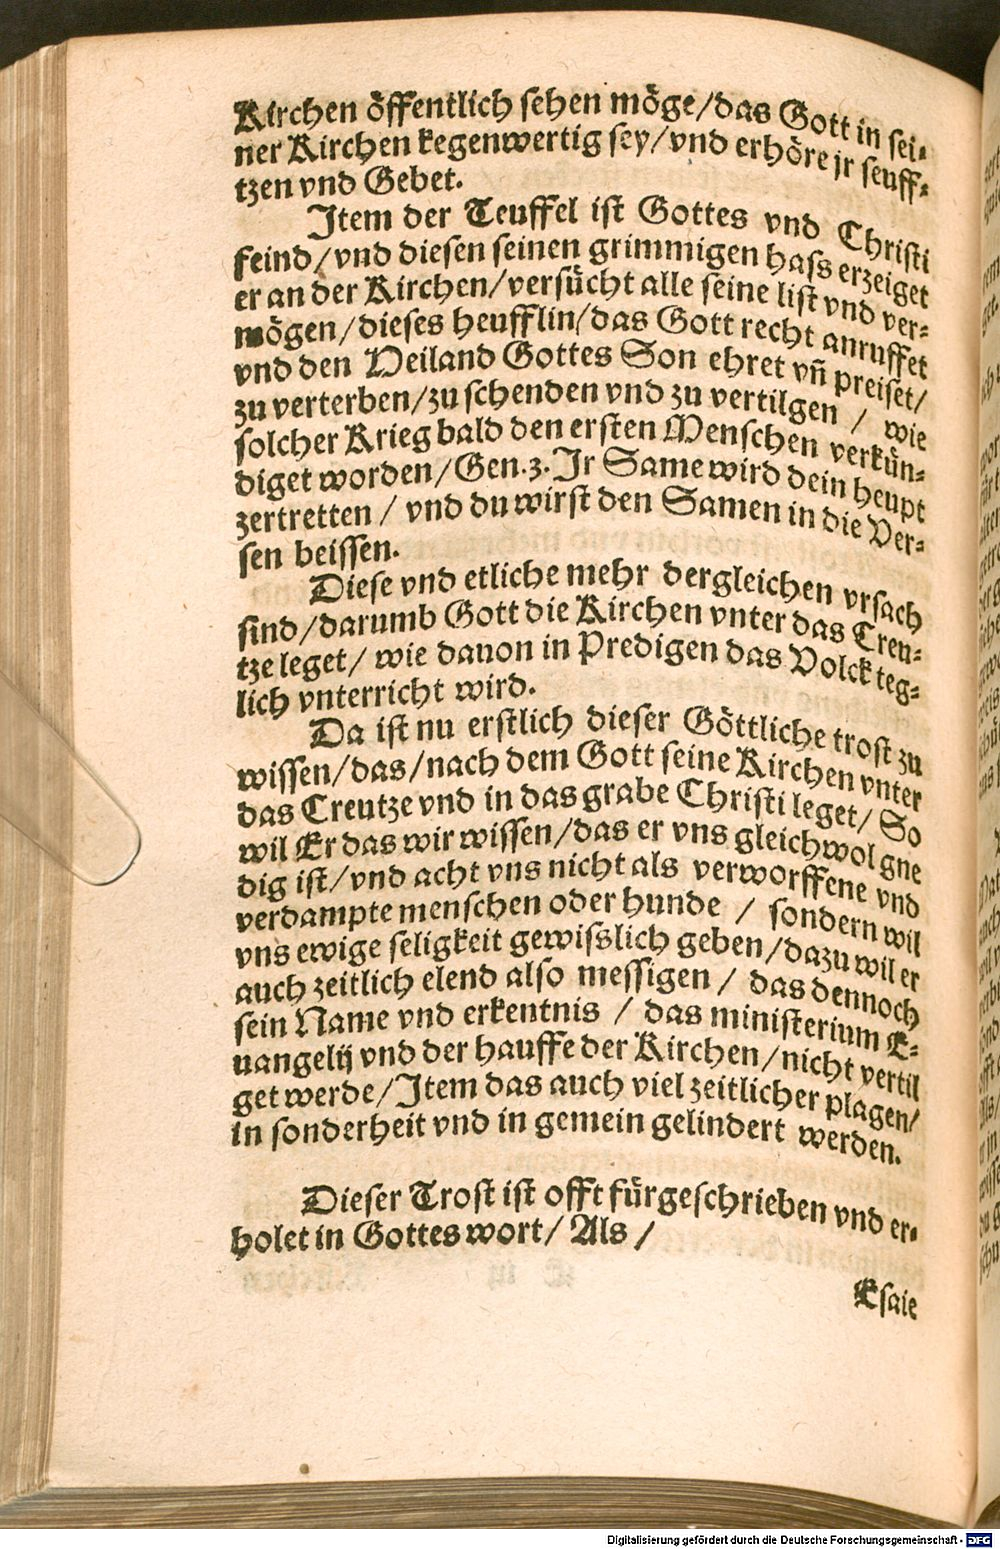 Kirchen öffentlich sehen möge/das Gott in sei-
ner Kirchen kegenwertig sey/vnd erhöre jr seuff-
tzen vnd Gebet.
Item der Teuffel ist Gottes vnd Christi
feind/vnd diesen seinen grimmigen hass erzeiget
er an der Kirchen/versücht alle seine list vnd ver-
mögen/dieses heufflin/das Gott recht anruffet
vnd den Heiland Gottes Son ehret vñ preiset/
zu verterben/zu schenden vnd zu vertilgen / wie
solcher Krieg bald den ersten Menschen verkün-
diget worden/Gen.3. Ir Same wird dein heupt
zertretten / vnd du wirst den Samen in die Ver-
sen beissen.
Diese vnd etliche mehr dergleichen vrsach
sind/darumb Gott die Kirchen vnter das Creu-
tze leget/ wie dauon in Predigen das Volck teg-
lich vnterricht wird.
Da ist nu erstlich dieser Göttliche trost zu
wissen/das/nach dem Gott seine Kirchen vnter
das Creutze vnd in das grabe Christi leget/ So
wil Er das wir wissen/das er vns gleichwol gne
dig ist/vnd acht vns nicht als verworffene vnd
verdampte menschen oder hunde / sondern wil
vns ewige seligkeit gewisslich geben/dazu wil er
auch zeitlich elend also messigen / das dennoch
sein Name vnd erkentnis / das ministerium E-
uangelij vnd der hauffe der Kirchen/nicht vertil
get werde/Item das auch viel zeitlicher plagen/
in sonderheit vnd in gemein gelindert werden.
Dieser Trost ist offt fürgeschrieben vnd er-
holet in Gottes wort/ Als /
Esaie
Digitalisierung gefördert durch die Deutsche Forschungsgemeinschaft - DFG